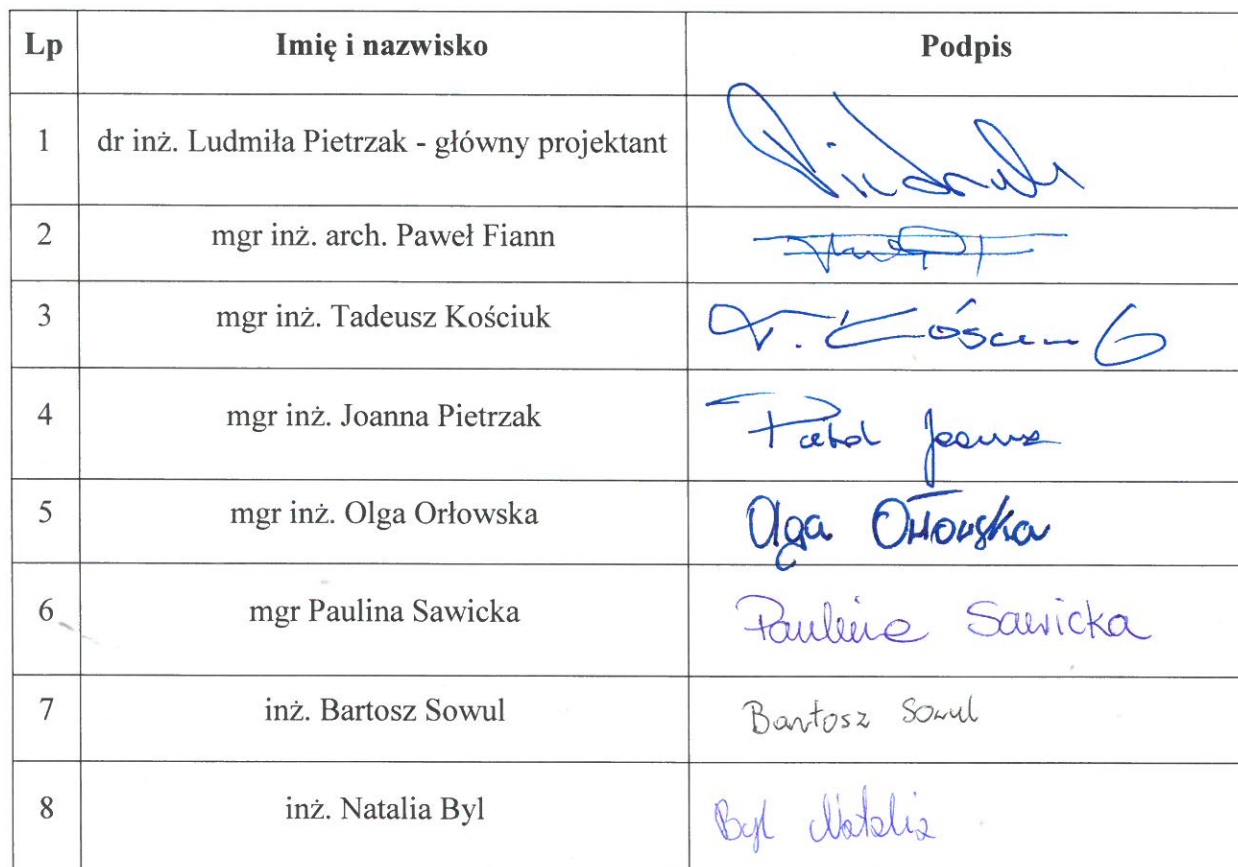 Lp Imię i nazwisko Podpis
1 dr inż. Ludmiła Pietrzak - główny projektant
2 mgr inż. arch. Paweł Fiann
3 mgr inż. Tadeusz Kościuk T.
4 mgr inż. Joanna Pietrzak
5 mgr inż. Olga Orłowska Olga Orłowska
6 mgr Paulina Sawicka Paulina Sawicka
7 inż. Bartosz Sowul Bartosz Sowul
8 inż. Natalia Byl Byl Natalia